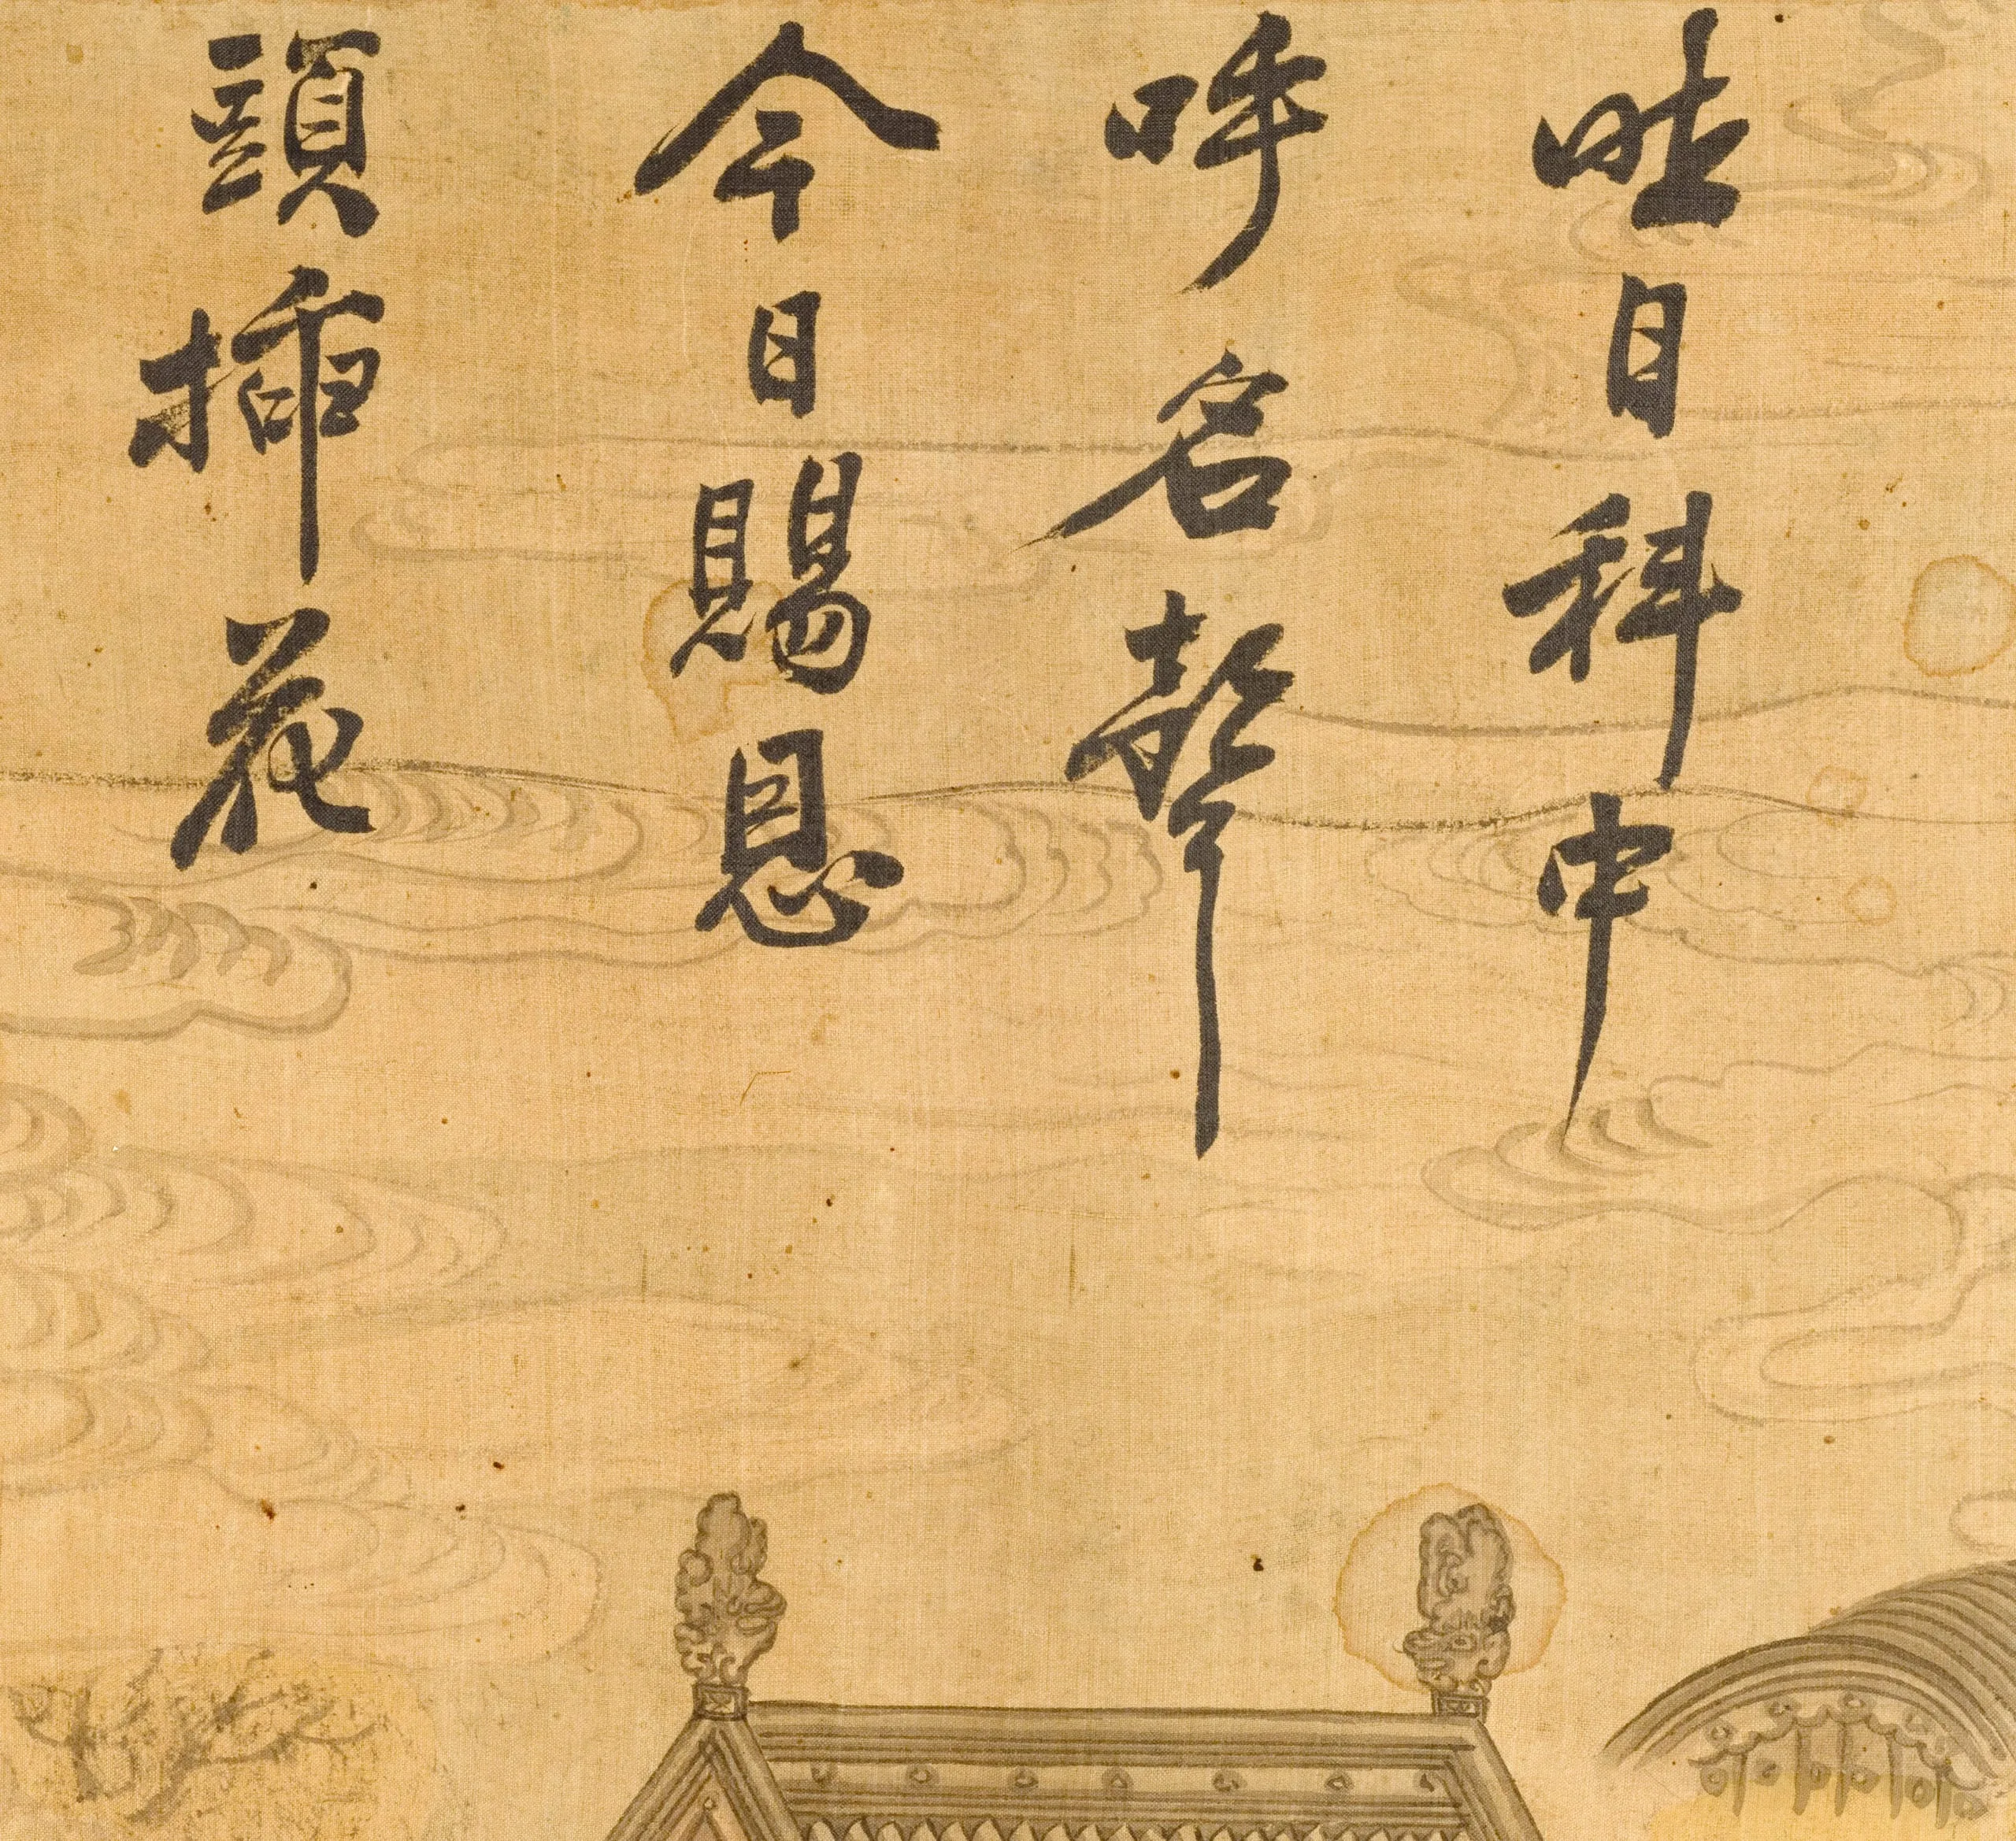 昨日科中
呼名聲
今日賜恩
頭揷花